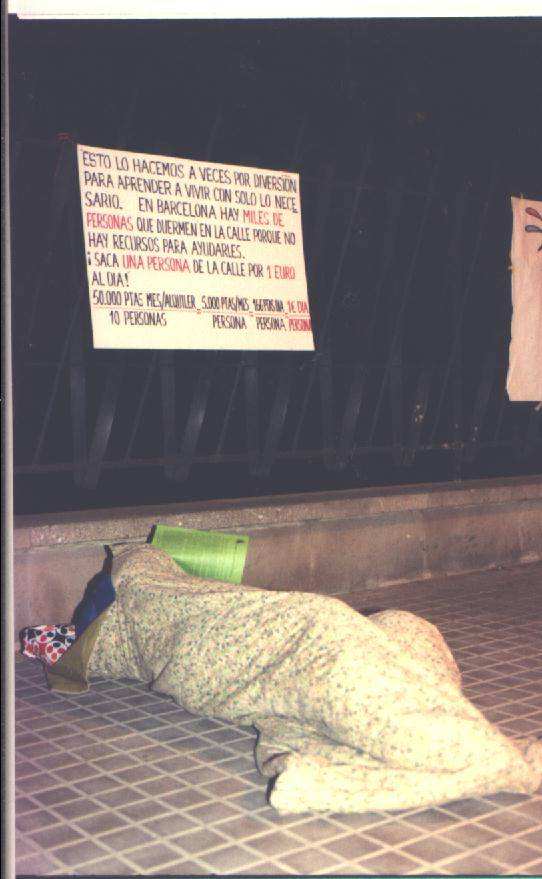 ESTO LO HACEMOS A VECES POR DIVERSION
PARA APRENDER A VIVIR CON SOLO LO NECE
SARIO. EN BARCELONA HAY MILES DE
PERSONAS QUE DUERMEN EN LA CALLE PORQUE NO
HAY RECURSOS PARA AYUDARLES.
¡SACA UNA PERSONA DE LA CALLE POR 1 EURO
AL DIA!
50.000 PTAS MES/ALQUILER = 5.000 PTAS/MES = 166 PTAS DIA = 1 € DIA
10 PERSONAS PERSONA PERSONA PERSONA